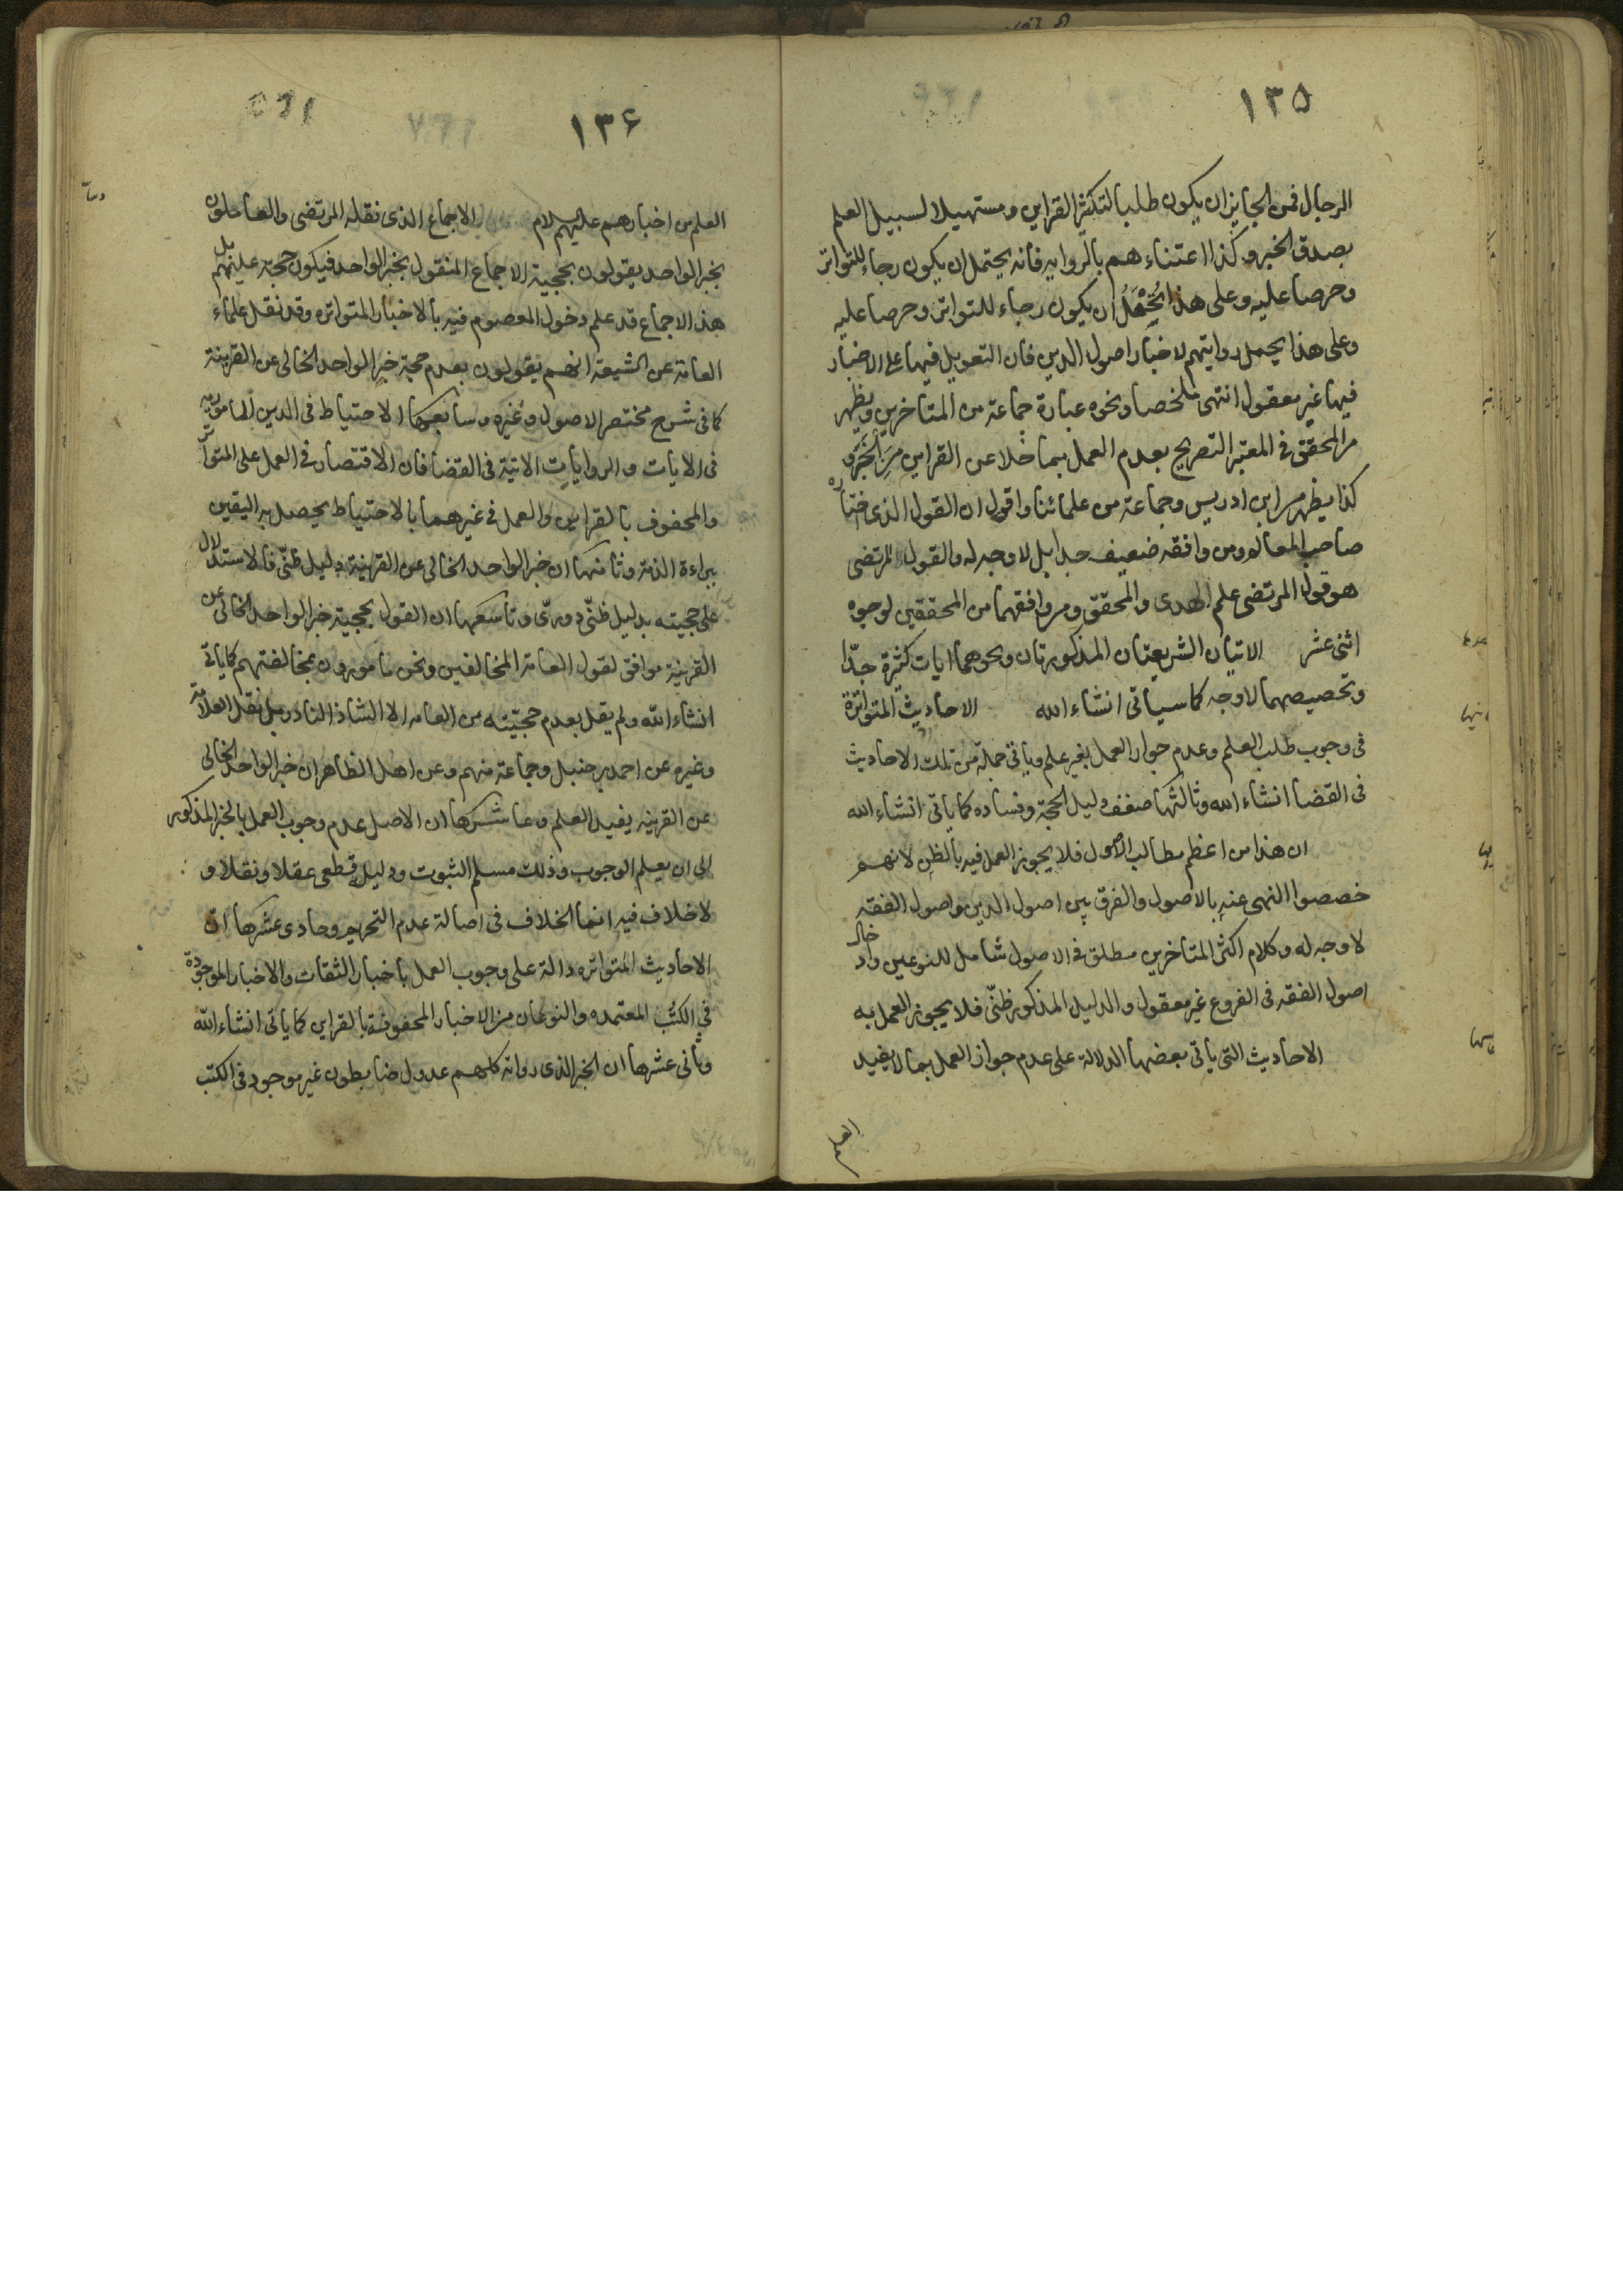 ١٣٥
الرجال فمن الجايز ان يكون طلبا لتكثير القراين ومستهيلا لسبيل العلم
بصدق الخبر وكذا اعتناءهم بالروايه فانه يحتمل ان يكون رجاء للتواتر
وحرصا عليه وعلى هذا يُحْمَلُ ان يكون رجاء للتواتر وحرصا عليه
وعلى هذا يحمل روايتهم لاخبار اصول الدين فان التعويل فيها على الاخبار
فيها غير معقول انتهى ملخصا ونحوه عبارة جماعة من المتاخرين ويظهر
من المحقق في المعتبر التصريح بعدم العمل بما خلا عن القراين من الخبر و
كذا يظهر من ابن ادريس وجماعة من علمائنا واقول ان القول الذى اختاره
صاحب المعالم ومن وافقه ضعيف جدا بل لا وجه له والقول المرتضى
هو قول المرتضى علم الهدى والمحقق ومن وافقهما من المحققين لوجوه
اثنى عشر الايتان الشريعتان المذكورتان ونحوهما ايات كثيرة جدّا
وتخصيصهما لا وجه كما سياتى انشاء الله الاحاديث المتواترة
فى وجوب طلب العلم وعدم جواز العمل بغير علم وياتى جملة من تلك الاحاديث
فى القضا انشاء الله وثالثها ضعف دليل الحجة وفساده كما ياتى انشاء الله
ان هذا من اعظم مطالب الاصول فلا يجوز العمل فيه بالظن لانهم
خصصوا النهى عنه بالاصول والفرق بين اصول الدين واصول الفقه
لا وجه له وكلام اكثر المتاخرين مطلق فى الاصول شامل للنوعين وادخال
اصول الفقه فى الفروع غير معقول والدليل المذكور ظنّى فلا يجوز العمل به
الاحاديث التى ياتى بعضها الدلالة على عدم جواز العمل بما لا يفيد
١٣۶
العلم من اخبارهم عليهم السلام الاجماع الذى نقله المرتضى والعاملون
بخبر الواحد يقولون بحجية الاجماع المنقول بخبر الواحد فيكون حجة عليهم بل
هذا الاجماع قد علم دخول المعصوم فيه بالاخبار المتواتره وقد نقل علماء
العامة عن الشيعة انهم يقولون بعدم حجة خبر الواحد الخالى عن القرينة
كما فى شرح مختصر الاصول وغيره وسابعها الاحتياط فى الدين المامور به
فى الايات والروايات الاتية فى القضا فان الاقتصار فى العمل على المتواتر
والمحفوف بالقراين والعمل فى غيرهما بالاحتياط يحصل به اليقين
ببراءة الذمة وثامنها ان خبر الواحد الخالى عن القرينة دليل ظنّى فالاستدلال
على حجيته بدليل ظنّى دورىّ وتاسعها ان القول بحجية خبر الواحد الخالى عن
القرينة موافق لقول العامة المخالفين ونحن مامورون بمخالفتهم كما ياتى
انشاء الله ولم يقل بعدم حجيّته من العامه الا الشاذ النادر بل نقل العلامة
وغيره عن احمد بن حنبل وجماعة منهم وعن اهل الظاهر ان خبر الواحد الخالى
عن القرينه يفيد العلم وعاشرها ان الاصل عدم وجوب العمل بالخبر المذكور
الى ان يعلم الوجوب وذلك مسلم الثبوت ودليله قطعى عقلا ونقلا و
لا خلاف فيه انما الخلاف فى اصالة عدم التحريم وحادى عشرها انّ
الاحاديث المتواتره دالة على وجوب العمل باخبار الثقات والاخبار الموجودة
فى الكتب المعتمده والنوعان من الاخبار المحفوفة بالقراين كما ياتى انشاء الله
وثانى عشرها ان الخبر الذى رواته كلهم عدول ضابطون غير موجود فى الكتب